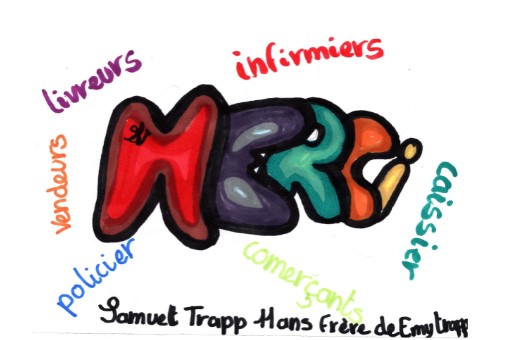 livreurs
infirmiers
MERCi
vendeurs
caissier
policier
comerçants
Samuel Trapp Hans Frère de Emy trapp